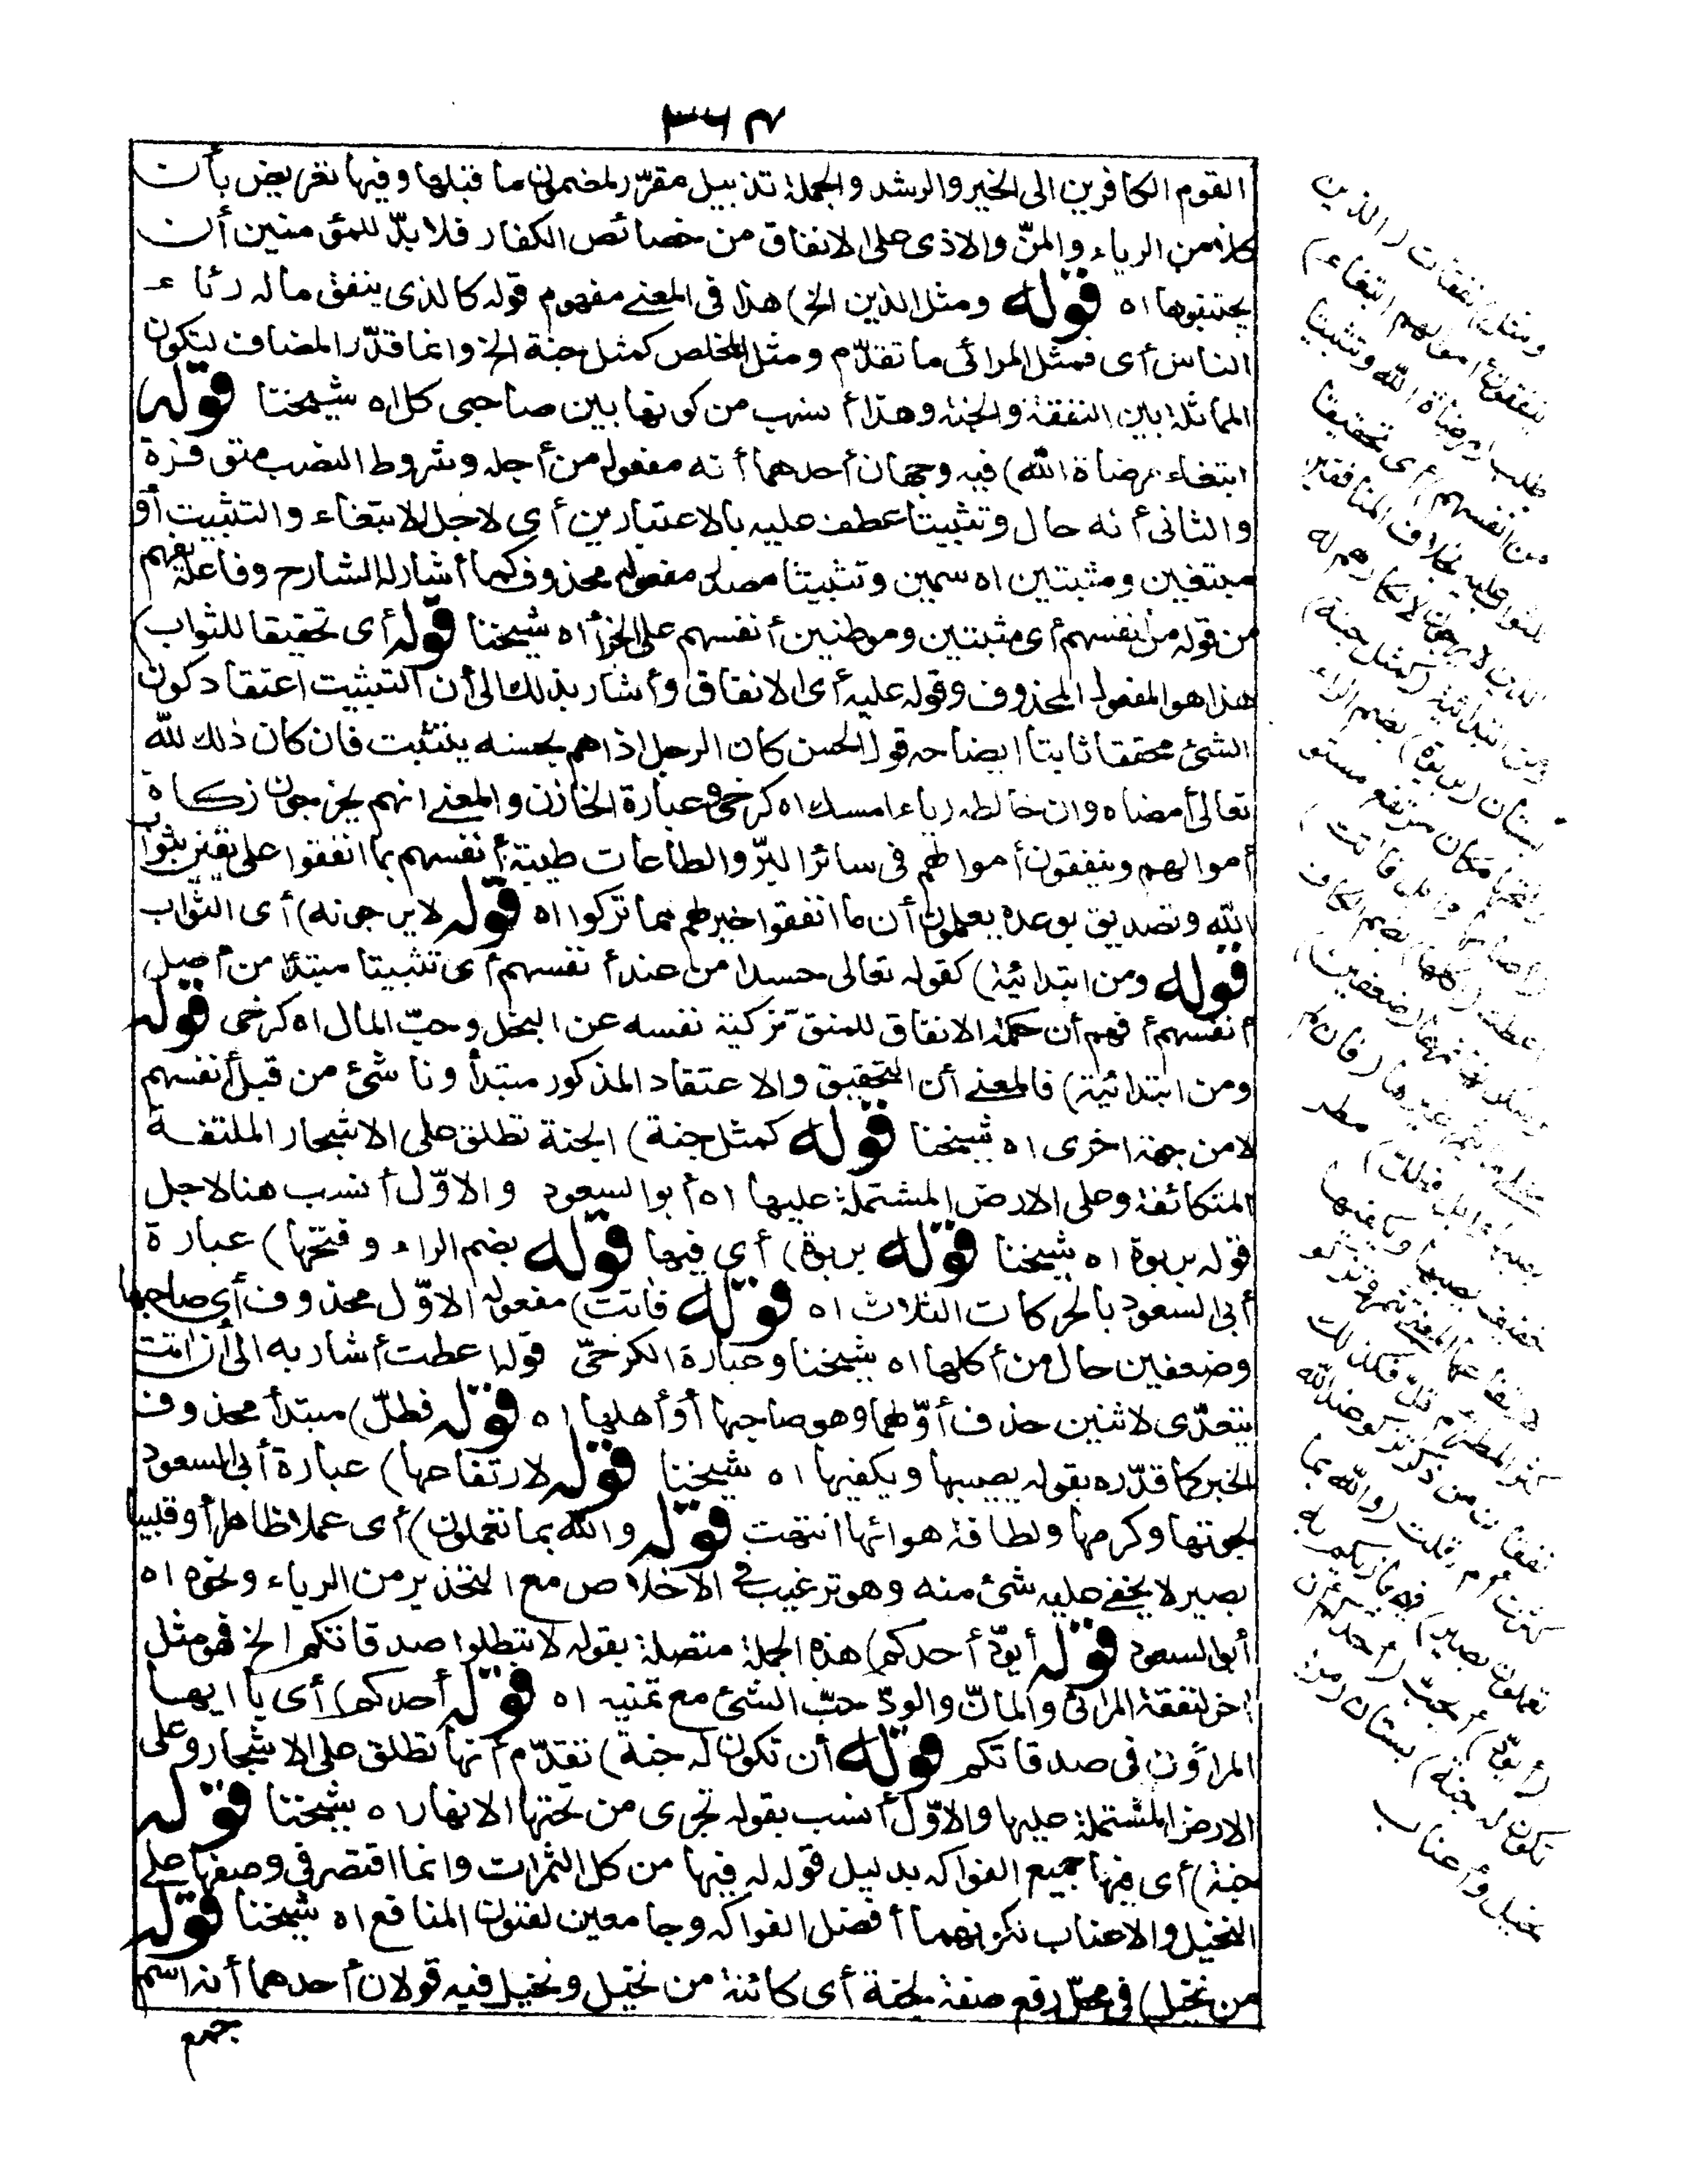 القوم الكافرين الى الخير والرشد والجملة تذييل مقرّر لمضمون ما قبلها وفيها تعريض بأن
كلا من الرياء والمنّ والاذى على الانفاق من خصائص الكفار فلا بدّ للمؤمنين أن
يجتنبوها اه قوله ومثل الذين الخ) هذا فى المعنى مفهوم قوله كالذى ينفق ماله رئاء
الناس أى فمثل المرائى ما تقدّم ومثل المخلص كمثل جنة الخ وانما قدّر المضاف لتكون
المماثلة بين النفقة والجنة وهذا أنسب من كونها بين صاحبى كل اه شيخنا قوله
ابتغاء مرضاة الله) فيه وجهان أحدهما أنه مفعول من أجله وشروط النصب متوفرة
والثانى أنه حال وتثبيتا عطف عليه بالاعتبارين أى لاجل الابتغاء والتثبيت أو
مبتغين ومثبتين اه سمين وتثبيتا مصدر مفعوله محذوف كما أشار له الشارح وفاعله يفهم
من قوله من أنفسهم أى مثبتين وموطنين أنفسهم على الخ اه شيخنا قوله أى تحقيقا للثواب)
هذا هو المفعول المحذوف وقوله عليه أى الانفاق وأشار بذلك الى أن التثبيت اعتقاد كون
الشئ محققا ثابتا ايضاحه قول الحسن كان الرجل اذا هم بحسنه يتثبت فان كان ذلك لله
تعالى أمضاه وان خالطه رياء امسك اه كرخى وعبارة الخازن والمعنى انهم يخرجون زكاة
أموالهم وينفقون أموالهم فى سائر البرّ والطاعات طيبة أنفسهم بما انفقوا على يقين بثواب
الله وتصديق بوعده يعلمون أن ما انفقوا خير لهم مما تركوا اه قوله لا يرجونه) أى الثواب
قوله ومن ابتدائية) كقوله تعالى حسدا من عند أنفسهم أى تثبيتا مبتدأ من أصل
أنفسهم أفهم أن حكمة الانفاق للمنفق تزكية نفسه عن البخل وحبّ المال اه كرخى قوله
ومن ابتدائية) فالمعنى أن التحقيق والاعتقاد المذكور مبتدأ وناشئ من قبل أنفسهم
لا من جهة اخرى اه شيخنا قوله كمثل جنة) الجنة تطلق على الاشجار الملتفة
المتكاثفة وعلى الارض المشتملة عليها اه أبو السعود والاوّل أنسب هنا لاجل
قوله بربوة اه شيخنا قوله بربوة) أى فيها قوله بضم الراء وفتحها) عبارة
أبى السعود بالحركات الثلاث اه قوله فآتت) مفعوله الاوّل محذوف أى صاحبها
وضعفين حال من أكلها اه شيخنا وعبارة الكرخىّ قوله اعطت أشار به الى أن آتت
يتعدّى لاثنين حذف أوّلهما وهو صاحبها أو أهلها اه قوله فطلّ) مبتدأ محذوف
الخبر كما قدّره بقوله يصيبها ويكفيها اه شيخنا قوله لارتفاعها) عبارة أبى السعود
لجودتها وكرمها ولطافة هوائها انتهت قوله والله بما تعملون) أى عملا ظاهرا أو قلبيا
بصير لا يخفى عليه شئ منه وهو ترغيب فى الاخلاص مع التحذير من الرياء ونحوه اه
أبو السعود قوله أيودّ أحدكم) هذه الجملة متصلة بقوله لا تبطلوا صدقاتكم الخ فهو مثل
آخر لنفقة المرائى والمانّ والودّ حبّ الشئ مع تمنيه اه قوله أحدكم) أى يا ايها
المراؤن فى صدقاتكم قوله أن تكون له جنة) تقدّم أنها تطلق على الاشجار وعلى
الارض المشتملة عليها والاوّل أنسب بقوله تجرى من تحتها الانهار اه شيخنا قوله
جنة) أى فيها جميع الفواكه بدليل قوله له فيها من كل الثمرات وانما اقتصر فى وصفها على
النخيل والاعناب لكونهما أفضل الفواكه وجامعين لفنون المنافع اه شيخنا قوله
من نخيل) فى محل رفع صفة لجنة أى كائنة من نخيل ونخيل فيه قولان أحدهما أنه اسم
جمع
ومثل) نفقات (الذين
ينفقون أموالهم ابتغاء)
طلب (مرضاة الله وتثبيتا
من أنفسهم) أى تحقيقا
للثواب عليه بخلاف المنافقين
الذين لا يرجونه لانكارهم له
ومن ابتدائية (كمثل جنة)
بستان (بربوة) بضم الراء
وفتحها مكان مرتفع مستو
(أصابها وابل فآتت)
اعطت (أكلها) بضم الكاف
وسكونها ثمرها (ضعفين)
مثلى ما يثمر غيرها (فان لم
يصبها وابل فطل) مطر
خفيف يصيبها ويكفيها
لارتفاعها المعنى تثمر وتزكو
كثر المطر أم قلّ فكذلك
نفقات من ذكر تزكو عند الله
كثرت أم قلت (والله بما
تعملون بصير) فيجازيكم به
(أيودّ) أيحبّ (أحدكم أن
تكون له جنة) بستان (من
نخيل وأعناب